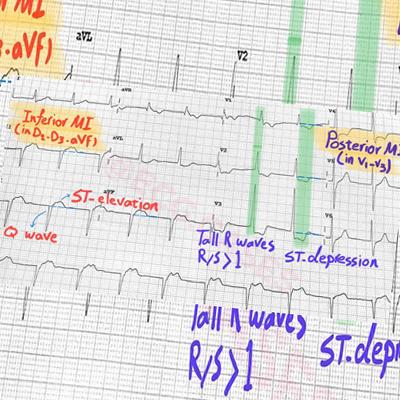 MI
aVf)
aVL
V2
aVR
V1
V4
Inferior MI
(in D2-D3-aVf)
aVL
V2
Posterior MI
(in V1-V3)
V5
ST-elevation
aVF
V3
V6
Q wave
Tall R waves
R/S>1
ST.depression
Tall R waves
R/S>1
ST.depr